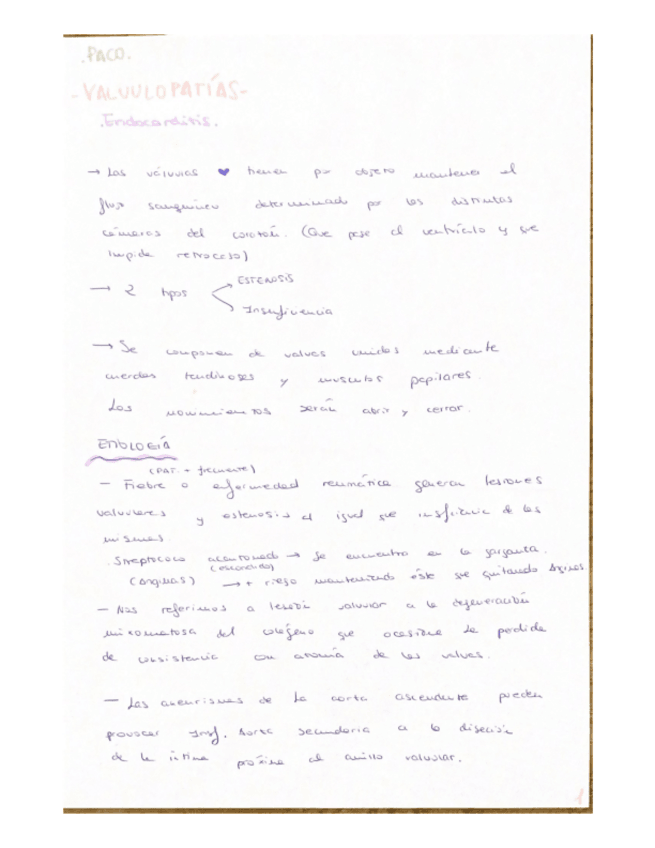 .PACO.
-VALVULOPATÍAS-
.Endocarditis.
→ Las válvulas 💜 tienen por objeto mantener el
flujo sanguíneo determinado por las distintas
cámaras del corazón. (Que pase al ventrículo y que
impida retroceso)
→ 2 tipos
ESTENOSIS
Insuficiencia
→ Se componen de valvas unidas mediante
cuerdas tendinosas y musculos papilares.
Los movimientos serán abrir y cerrar.
ETIOLOGÍA
(PAT. + frecuente)
- Fiebre o enfermedad reumática generan lesiones
valvulares y estenosis al igual que insuficiencia de las
mismas.
. Streptococo acantonado → Se encuentra en la garganta.
(escondido)
(Anginas) → + riesgo manteniendo éste que quitando Anginas.
- Nos referimos a lesión valvular a la degeneración
mixomatosa del colágeno que ocasiona la perdida
de consistencia con anomía de las valvas.
- Las aneurismas de la aorta ascendente pueden
provocar Insf. Aorta secundaria a la disección
de la íntima próxima al anillo valvular.
1